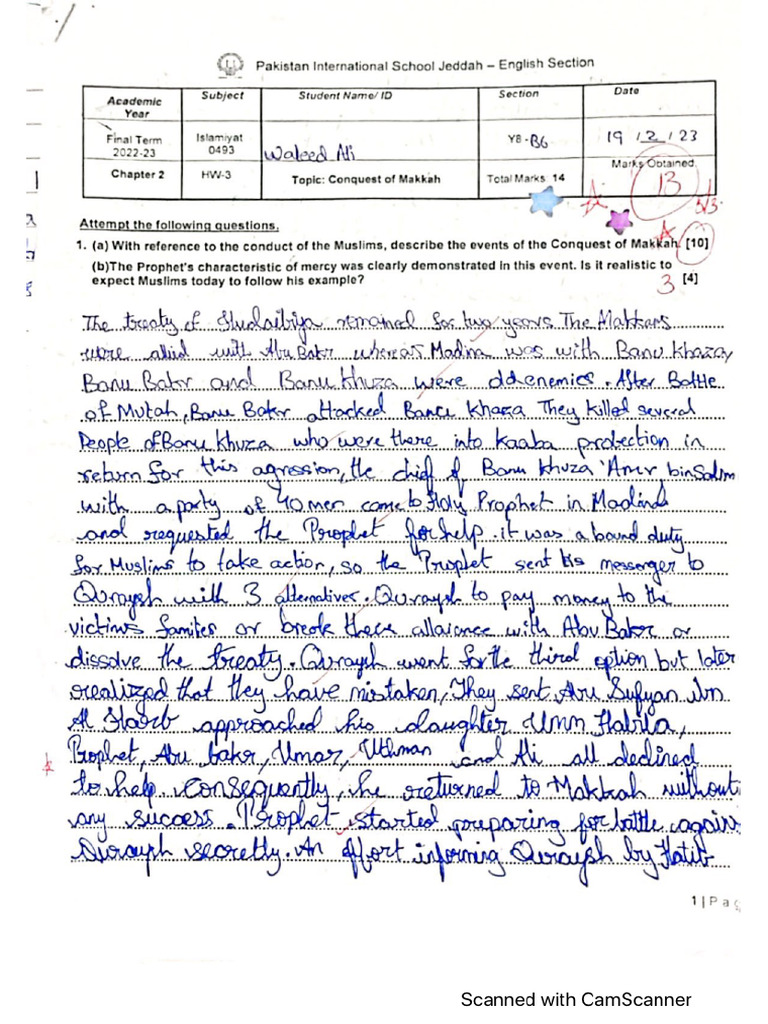 Pakistan International School Jeddah – English Section
Academic Year
Subject
Student Name/ ID
Section
Date
Final Term 2022-23
Islamiyat 0493
Waleed Ali
Y8 - B6
19 / 2 / 23
Chapter 2
HW-3
Topic: Conquest of Makkah
Total Marks: 14
Marks Obtained
13
Attempt the following questions.
1. (a) With reference to the conduct of the Muslims, describe the events of the Conquest of Makkah. [10]
(b)The Prophet's characteristic of mercy was clearly demonstrated in this event. Is it realistic to
expect Muslims today to follow his example?
3 [4]
The treaty of Hudaibiya remained for two years. The Makkans
were allied with Abu Bakr whereas Madina was with Banu Khaza,
Banu Bakr and Banu Khuza were old enemies. After Battle
of Mutah, Banu Bakr attacked Banu Khaza They killed several
People of Banu Khuza who were there into kaaba protection in
return for this agression, the chief of Banu Khuza 'Amr bin Salim
with a party of 40 men came to Holy Prophet in Madina
and requested the Prophet for help. it was a bound duty
for Muslims to take action, so the Prophet sent his messenger to
Quraysh with 3 alternatives. Quraysh to pay money to the
victims families or break there allaiance with Abu Bakr or
dissolve the treaty. Quraysh went for the third option but later
realized that they have mistaken, They sent Abu Sufyan ibn
Al Harb approached his daughter Umm Habiba,
Prophet, Abu bakr, Umar, Uthman and Ali all declined
to help consequently, he returned to Makkah without
any success. Prophet started preparing for battle agains
Quraysh secretly. An effort informing Quraysh by Hatib
1 | P a g
Scanned with CamScanner